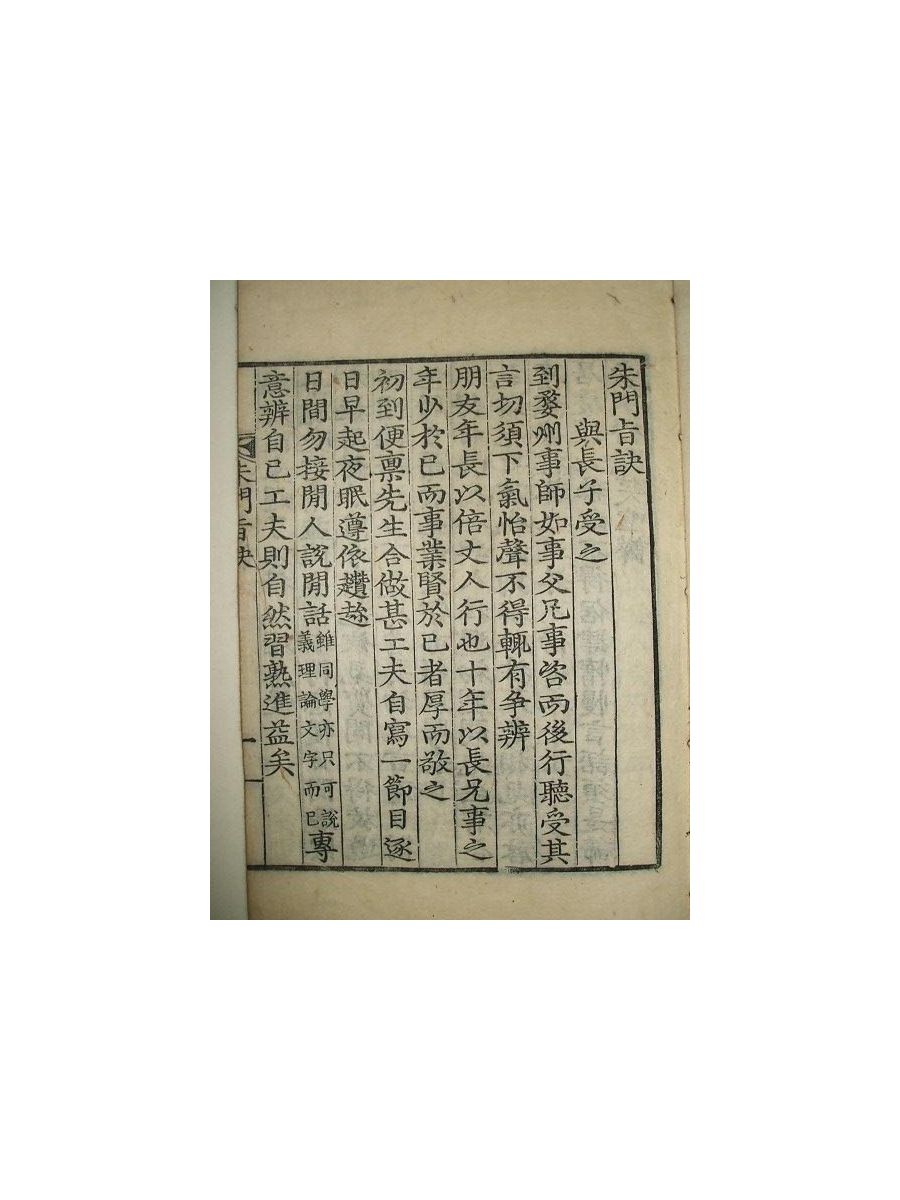 朱門旨訣
與長子受之
到婺州事師如事父凡事咨而後行聽受其
言切須下氣怡聲不得輒有争辨
朋友年長以倍丈人行也十年以長兄事之
年少於已而事業賢於已者厚而敬之
初到便禀先生合做甚工夫自寫一節目逐
日早起夜眠遵依趲趂
日間勿接閒人說閒話雖同學亦只可說義理論文字而已專
意辨自已工夫則自然習熟進益矣
朱門旨訣
一